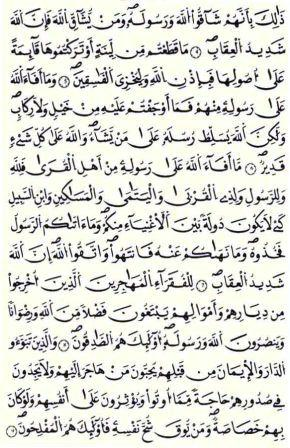 ذَٰلِكَ بِأَنَّهُمْ شَاقُّوا اللَّهَ وَرَسُولَهُ وَمَن يُشَاقِّ اللَّهَ فَإِنَّ اللَّهَ
شَدِيدُ الْعِقَابِ ۝ مَا قَطَعْتُم مِّن لِّينَةٍ أَوْ تَرَكْتُمُوهَا قَائِمَةً
عَلَىٰ أُصُولِهَا فَبِإِذْنِ اللَّهِ وَلِيُخْزِيَ الْفَاسِقِينَ ۝ وَمَا أَفَاءَ اللَّهُ
عَلَىٰ رَسُولِهِ مِنْهُمْ فَمَا أَوْجَفْتُمْ عَلَيْهِ مِنْ خَيْلٍ وَلَا رِكَابٍ
وَلَٰكِنَّ اللَّهَ يُسَلِّطُ رُسُلَهُ عَلَىٰ مَن يَشَاءُ وَاللَّهُ عَلَىٰ كُلِّ شَيْءٍ
قَدِيرٌ ۝ مَّا أَفَاءَ اللَّهُ عَلَىٰ رَسُولِهِ مِنْ أَهْلِ الْقُرَىٰ فَلِلَّهِ
وَلِلرَّسُولِ وَلِذِي الْقُرْبَىٰ وَالْيَتَامَىٰ وَالْمَسَاكِينِ وَابْنِ السَّبِيلِ
كَيْ لَا يَكُونَ دُولَةً بَيْنَ الْأَغْنِيَاءِ مِنكُمْ وَمَا آتَاكُمُ الرَّسُولُ
فَخُذُوهُ وَمَا نَهَاكُمْ عَنْهُ فَانتَهُوا وَاتَّقُوا اللَّهَ إِنَّ اللَّهَ
شَدِيدُ الْعِقَابِ ۝ لِلْفُقَرَاءِ الْمُهَاجِرِينَ الَّذِينَ أُخْرِجُوا
مِن دِيَارِهِمْ وَأَمْوَالِهِمْ يَبْتَغُونَ فَضْلًا مِّنَ اللَّهِ وَرِضْوَانًا
وَيَنصُرُونَ اللَّهَ وَرَسُولَهُ أُولَٰئِكَ هُمُ الصَّادِقُونَ ۝ وَالَّذِينَ تَبَوَّءُو
الدَّارَ وَالْإِيمَانَ مِن قَبْلِهِمْ يُحِبُّونَ مَنْ هَاجَرَ إِلَيْهِمْ وَلَا يَجِدُونَ
فِي صُدُورِهِمْ حَاجَةً مِّمَّا أُوتُوا وَيُؤْثِرُونَ عَلَىٰ أَنفُسِهِمْ وَلَوْ كَانَ
بِهِمْ خَصَاصَةٌ وَمَن يُوقَ شُحَّ نَفْسِهِ فَأُولَٰئِكَ هُمُ الْمُفْلِحُونَ ۝